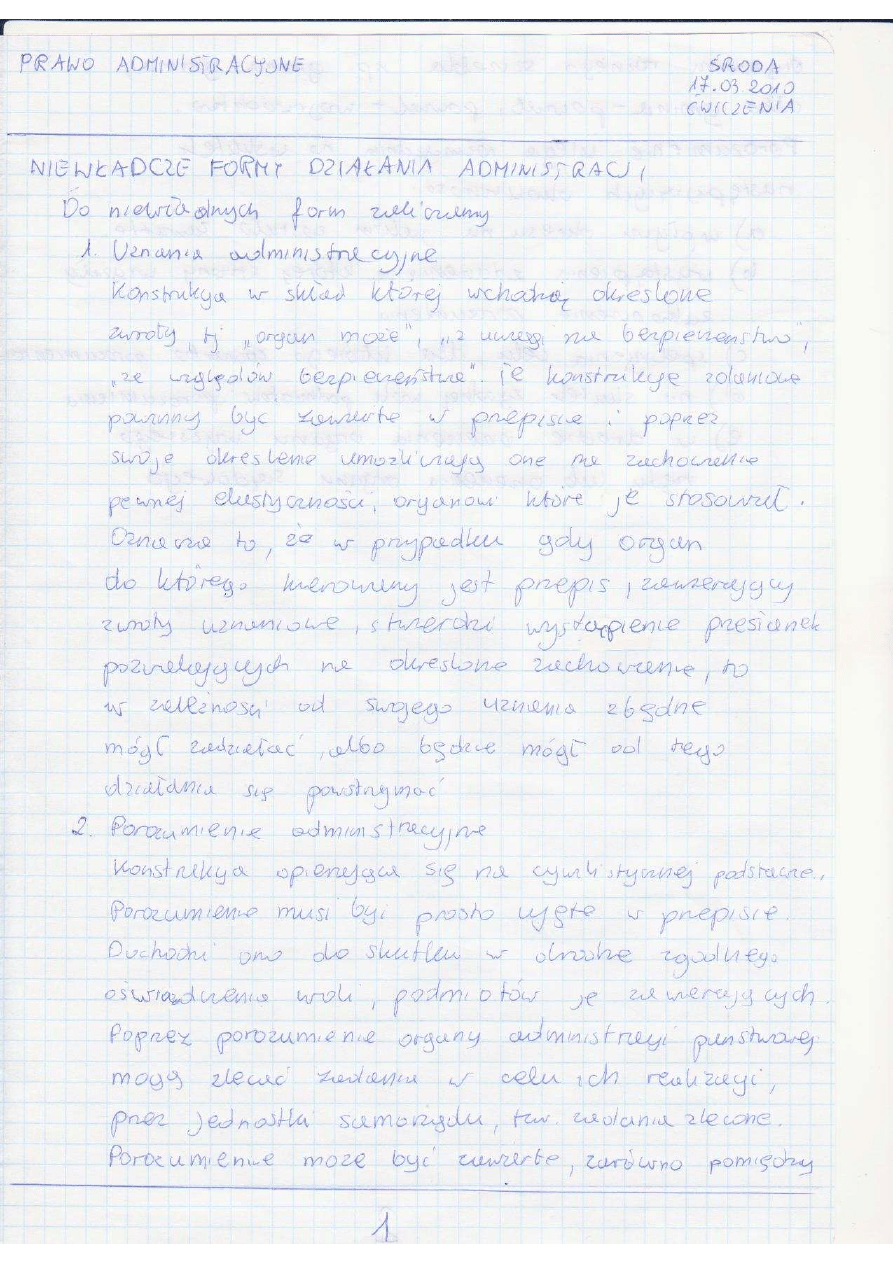 PRAWO ADMINISTRACYJNE
ŚRODA
17.03 2010
ĆWICZENIA
NIEWŁADCZE FORMY DZIAŁANIA ADMINISTRACJI
Do niewładnych form zaliczamy
1. Uznania administracyjne
Konstrukcja w skład której wchodzą określone
zwroty tj „organ może", „z uwagi na bezpieczeństwo",
„ze względów bezpieczeństwa". Te konstrukcje zdaniowe
powinny być zawarte w przepisie i poprzez
swoje określenie umożliwiają one na zachowanie
pewnej elastyczności, organowi które je stosował.
Oznacza to, że w przypadku gdy organ
do którego kierowany jest przepis, zawierający
zwroty uznaniowe, stwierdzi wystąpienie przesłanek
pozwalających na określone zachowanie, to
w zależności od swojego uznania zbędne
mógł zadziałać, albo będzie mógł od tego
działania się powstrzymać
2. Porozumienie administracyjne
Konstrukcja opierająca się na cywilistycznej podstawie.
Porozumienie musi być prosto ujęte w przepisie.
Dochodzi ono do skutku w drodze zgodnego
oświadczenia woli, podmiotów je zawierających.
Poprzez porozumienie organy administracji państwowej
mogą zlecać zadania w celu ich realizacji,
przez jednostki samorządu, tzw. zadania zlecone.
Porozumienie może być zawarte, zarówno pomiędzy
1